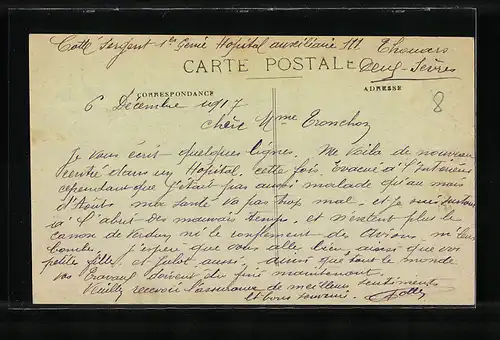 Collé Sergent 1er Génie Hôpital auxiliaire 111 Thouars
CARTE POSTALE Deux-Sèvres
CORRESPONDANCE ADRESSE
6 Décembre 1917 8
Chère Mme Tronchon
Je vous écrit quelques lignes. Me Voila de nouveau
rentré dans un Hôpital. cette fois Evacué à l'Intérieur
cependant que j'étais pas aussi malade qu'au mois
d'Août. ma santé va pas trop mal. et je suis surtout
à l'abri des mauvais temps. et n'entent plus le
canon de Verdun ni le ronflement des Avions ni leurs
bombes. J'espère que vous allez bien, aussi que vos
petites filles. et Julot aussi, ainsi que tout le monde
vos travaux doivent être fini maintenant.
Veuillez recevoir l'assurance de meilleurs sentiments
et bons souvenir. Collé